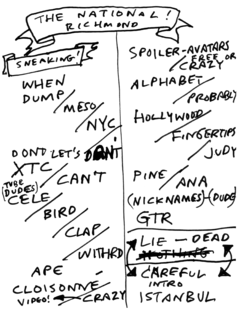 THE NATIONAL!
RICHMOND
SNEAKING
WHEN
DUMP/
MESO/
NYC
DONT LET'S DRNT
XTC/
(TUBE DUDES)
CAN'T
CELE/
BIRD/
CLAP/
WITHRD
APE
CLOISONNE
VIDEO! CRAZY
SPOILER-AVATARS
/FREE OR CRAZY
ALPHABET/
PROBABLY
HOLLYWOOD/
FINGERTIPS/
JUDY
PINE/
ANA
(NICKNAMES)-(DUDE)
GTR
LIE - DEAD
NOTHING
CAREFUL
INTRO
ISTANBUL